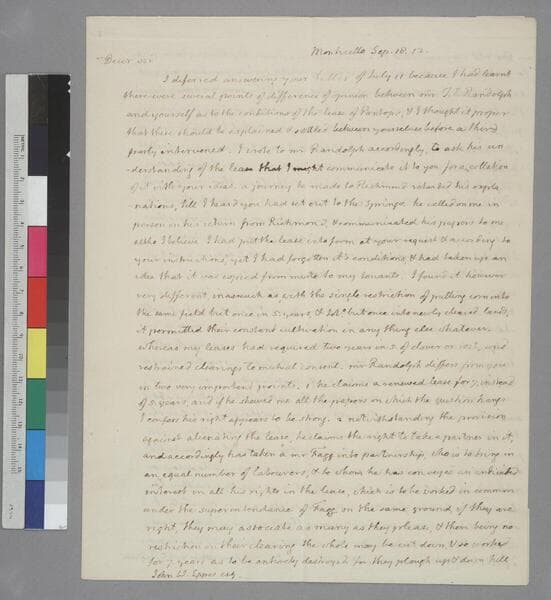 Monticello Sep. 18. 12.
Dear Sir
I deferred answering your letter of July 11 because I had learnt
there were several points of difference of opinion between mr T. E. Randolph
and yourself as to the conditions of the lease of Pantops, & I thought it proper
that these should be explained & settled between yourselves before a third
party intervened. I wrote to mr Randolph accordingly, to ask his un
-derstanding of the lease that I might communicate it to you for a collation
of it with your ideas. a journey he made to Richmond retarded his expla
nations, till I heard you had set out to the springs. he called on me in
person on his return from Richmond, & communicated his papers to me
altho I believe I had put the lease into form at your request & according to
your instructions, yet I had forgotten it's conditions, & had taken up an
idea that it was copied from mine to my tenants. I found it however
very different, inasmuch as with the single restriction of putting corn into
the same field but once in 5. years, & tobo but once into newly cleared lands,
it permitted their constant cultivation in any thing else whatever.
whereas my leases had required two years in 5. of clover or rest, and
restrained clearings to mutual consent. mr Randolph differs from you
in two very important points. 1. he claims a renewed lease for 7. instead
of 5. years, and if he shewed me all the papers on which the question hangs
I confess his right appears to be strong. 2. notwithstanding the provision
against alienating the lease, he claims the right to take a partner in it,
and accordingly has taken a mr Fagg into partnership, who is to bring in
an equal number of labourers, & to whom he has conveyed an undivided
interest in all his rights in the lease, which is to be worked in common
under the superintendance of Fagg on the same ground. if they are
right, they may associate as many as they please, & there being no
restriction on their clearing the whole may be cut down, & so worked
for 7. years as to be entirely destroyed for they plough up & down hill.
John W. Eppes esq.